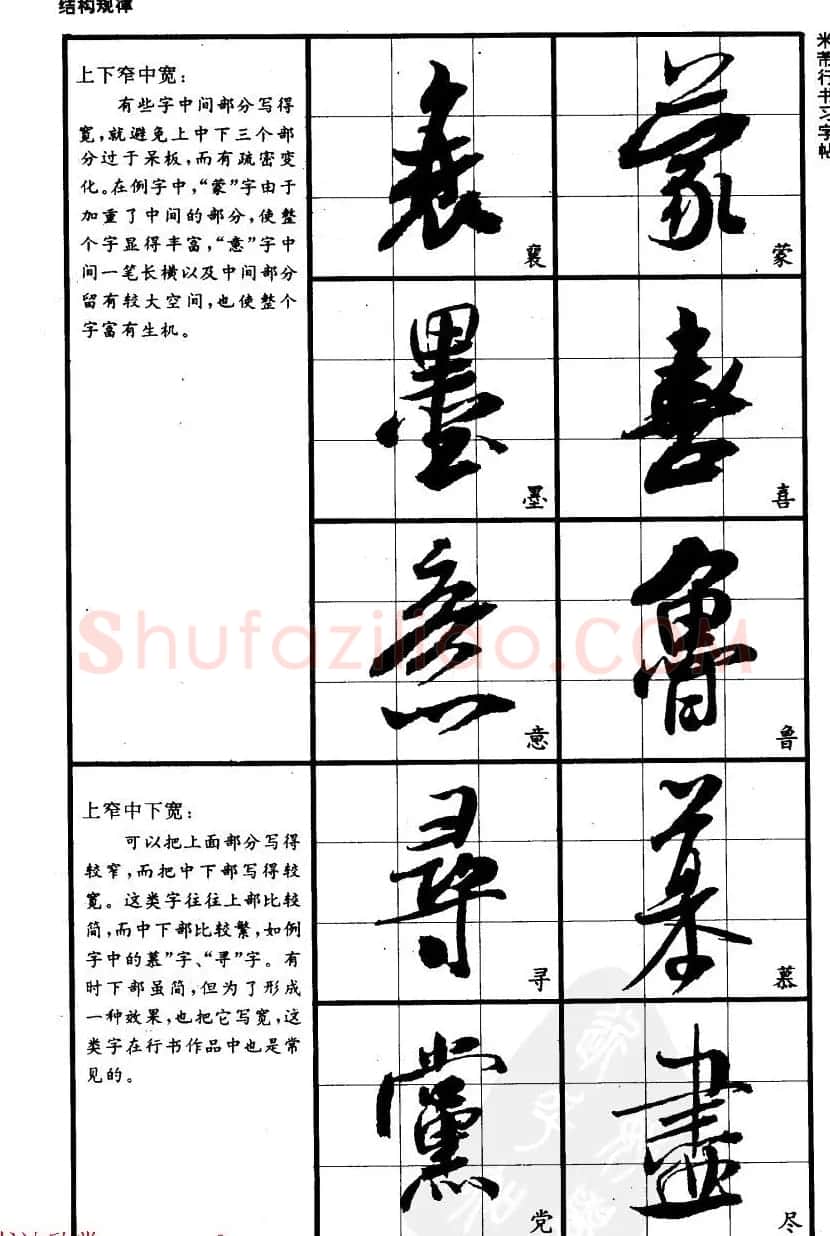 结构规律
米芾行书习字帖
上下窄中宽：
有些字中间部分写得
宽，就避免上中下三个部
分过于呆板，而有疏密变
化。在例字中，“蒙”字由于
加重了中间的部分，使整
个字显得丰富，“意”字中
间一笔长横以及中间部分
留有较大空间，也使整个
字富有生机。
蒙
襄
喜
墨
鲁
意
上窄中下宽：
可以把上面部分写得
较窄，而把中下部写得较
宽。这类字往往上部比较
简，而中下部比较繁，如例
字中的慕”字、“寻”字。有
时下部虽简，但为了形成
一种效果，也把它写宽，这
类字在行书作品中也是常
见的。
慕
寻
尽
党
Shufaziliao.COM